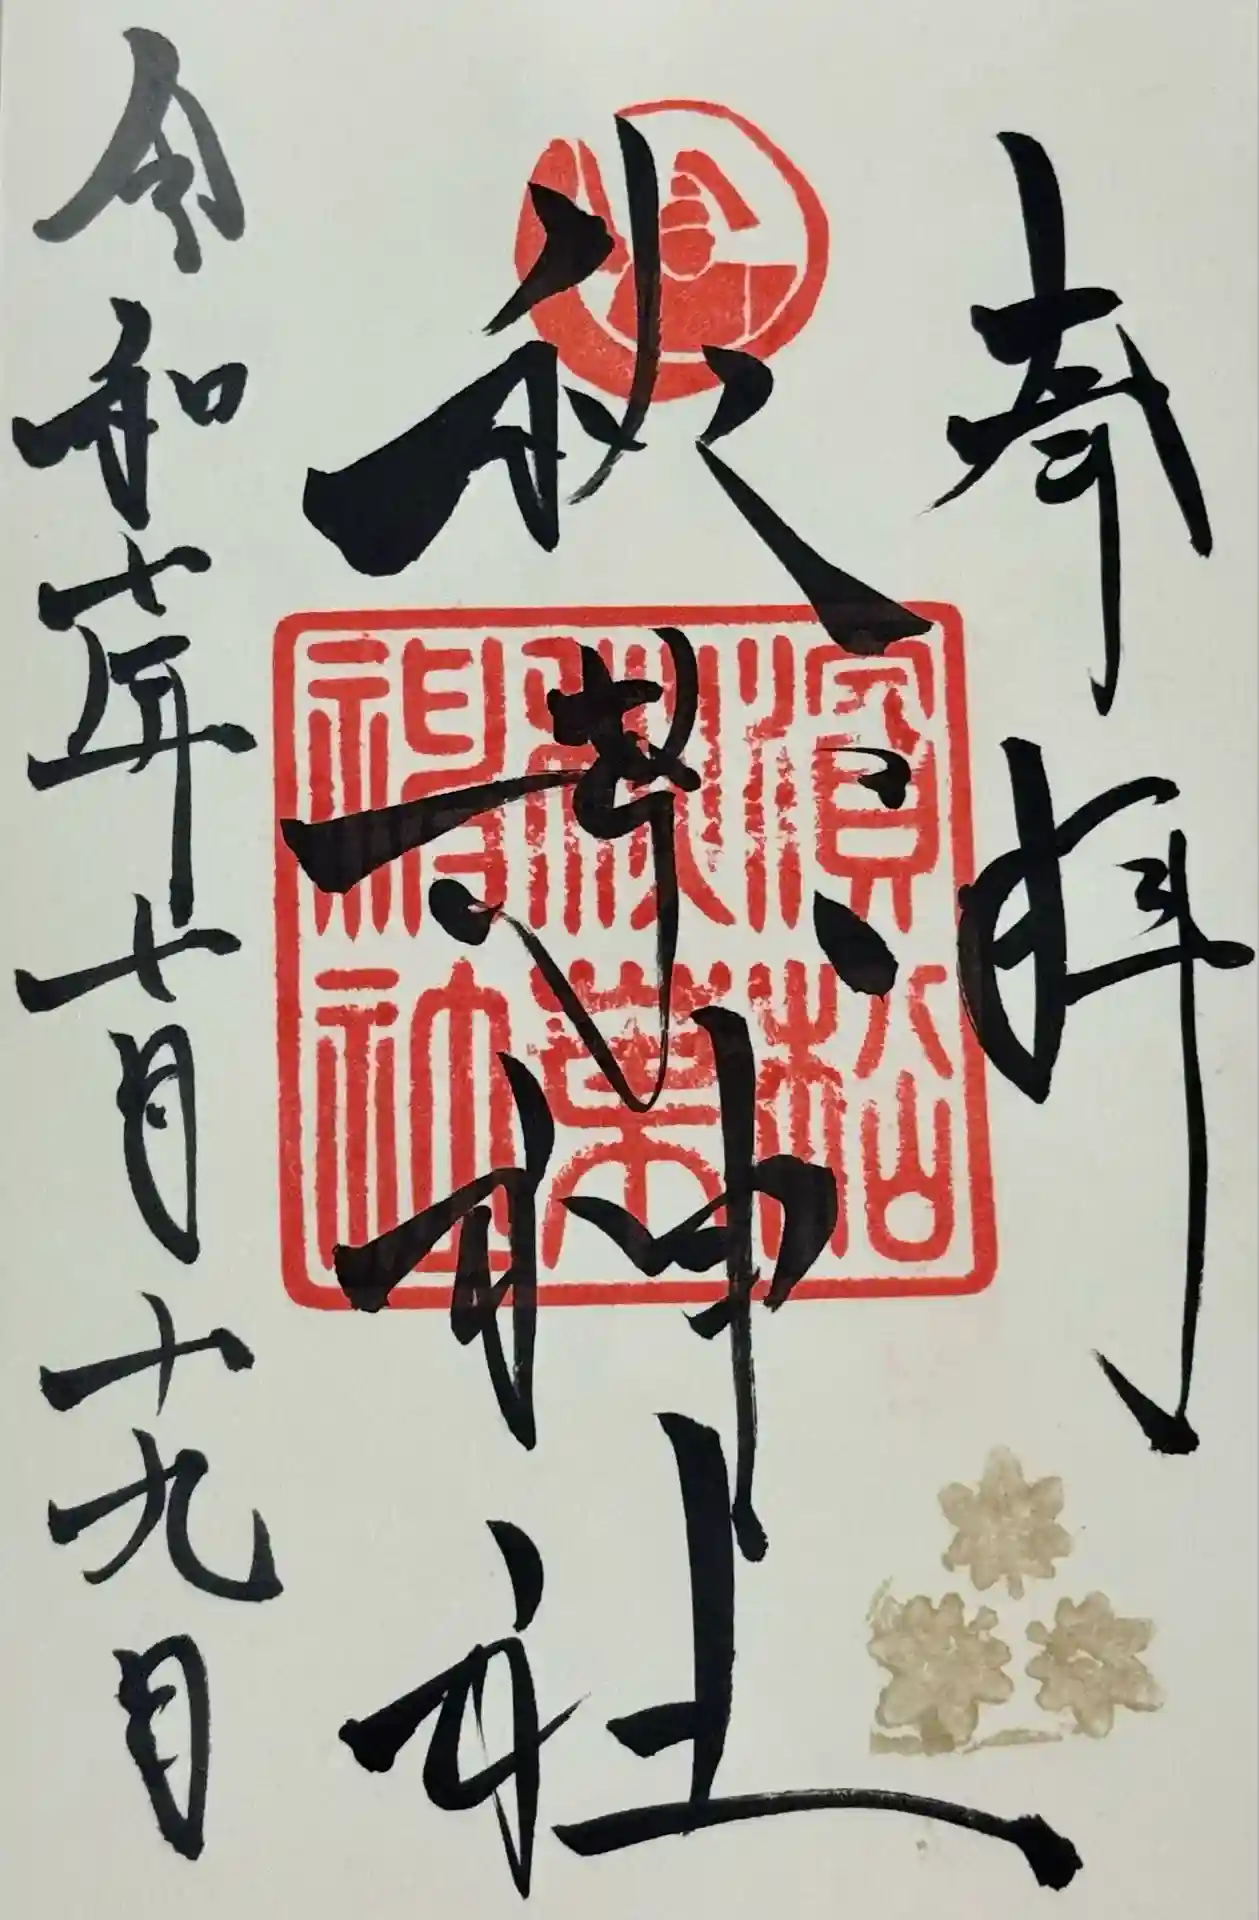 奉拝
秋葉神社
濱松
秋葉
神社
令和七年七月十九日